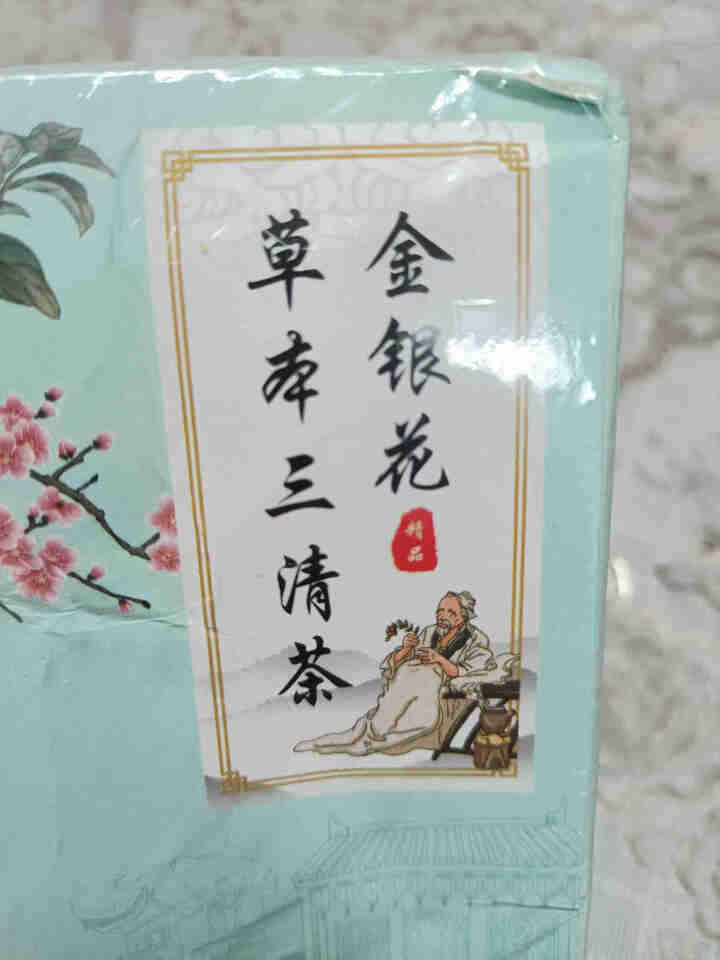 金银花
精品
草本三清茶